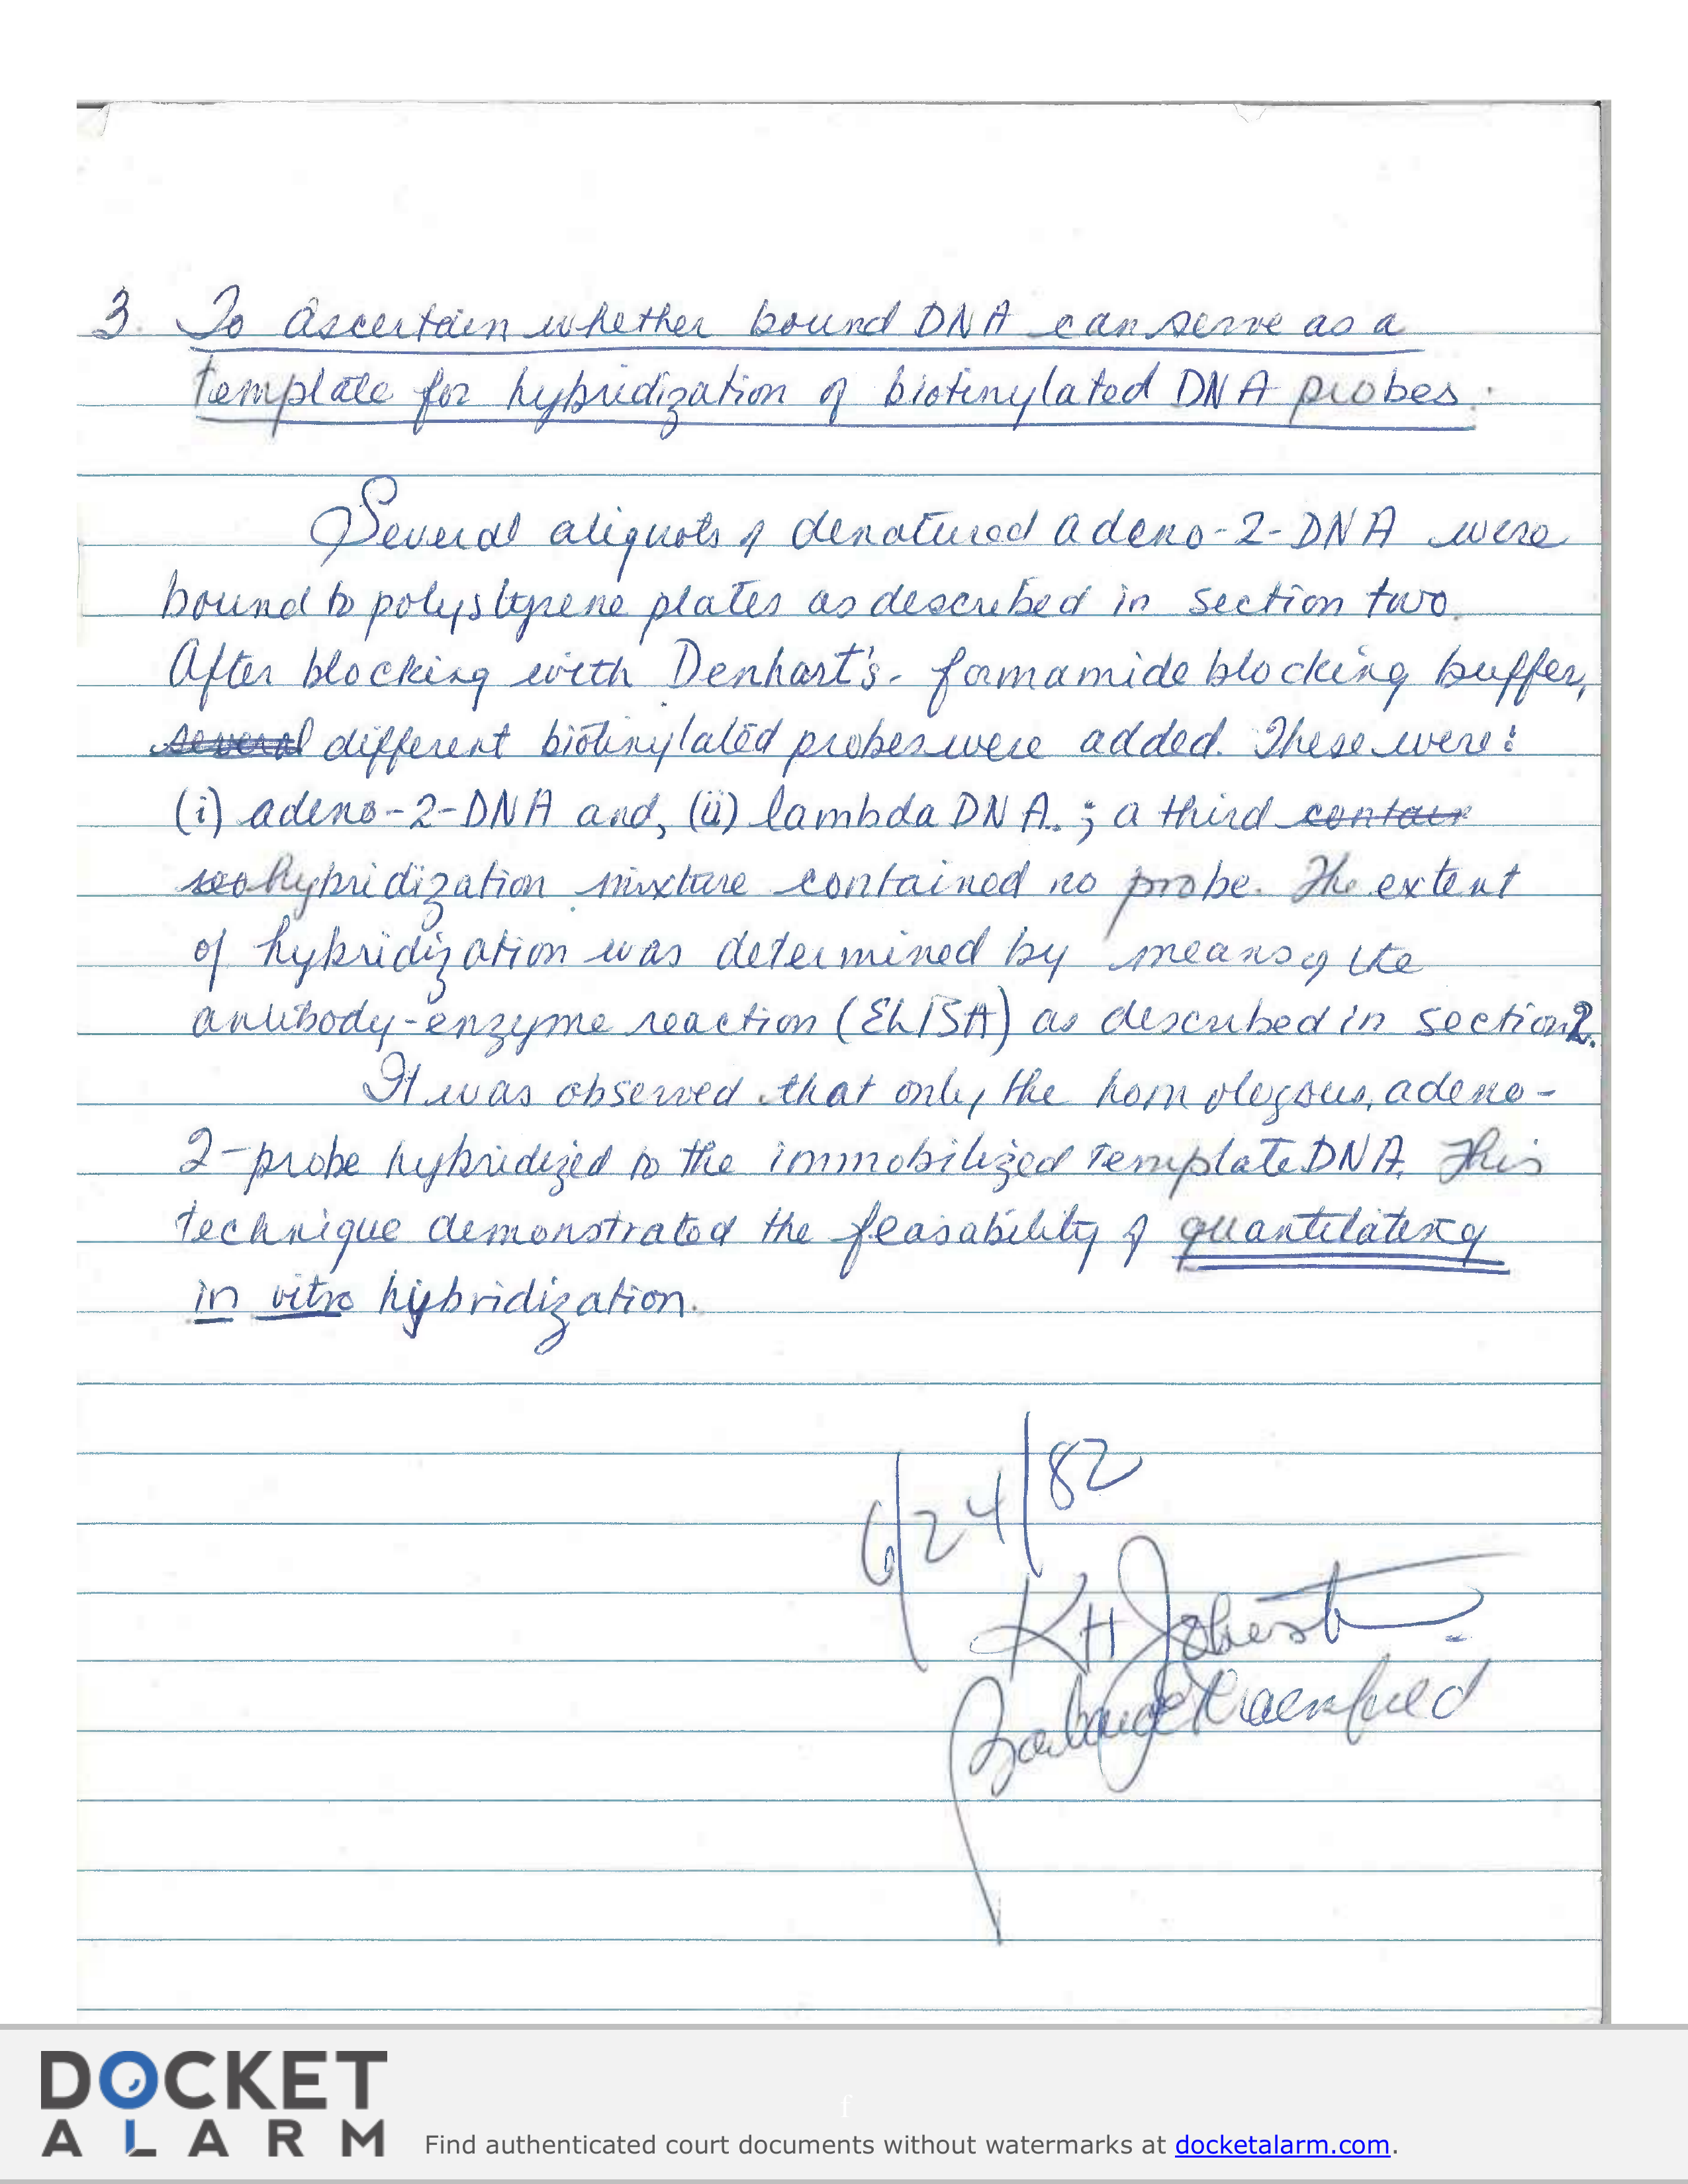 3. To ascertain whether bound DNA can serve as a
template for hybridization of biotinylated DNA probes.
Several aliquots of denatured adeno-2-DNA were
bound to polystyrene plates as described in section two.
After blocking with Denhart's-formamide blocking buffer,
several different biotinylated probes were added. These were:
(i) adeno-2-DNA and, (ii) lambda DNA.; a third contain
hybridization mixture contained no probe. The extent
of hybridization was determined by means of the
antibody-enzyme reaction (ELISA) as described in section 2.
It was observed that only the homologous, adeno-
2-probe hybridized to the immobilized template DNA. This
technique demonstrated the feasability of quantitating
in vitro hybridization.
6/24/82
KH Johnst
DOCKET
ALARM
f
Find authenticated court documents without watermarks at docketalarm.com.